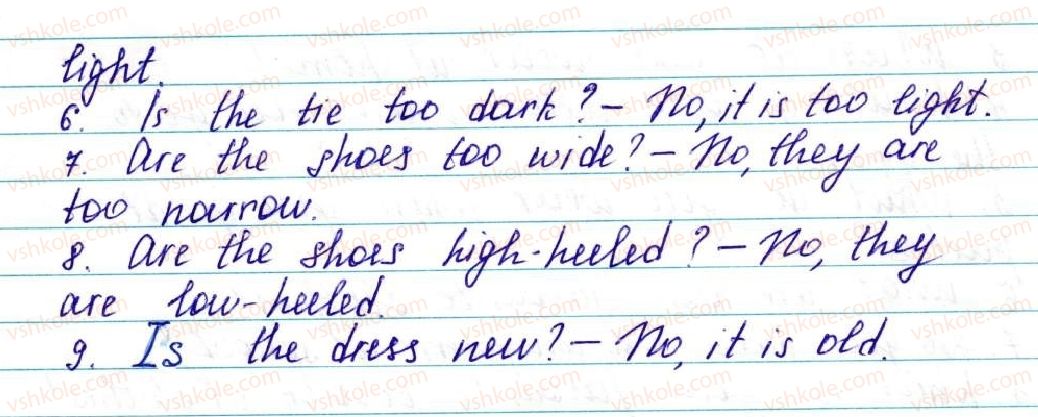 light.
6. Is the tie too dark? – No, it is too light.
7. Are the shoes too wide? – No, they are
too narrow.
8. Are the shoes high-heeled? – No, they
are low-heeled.
9. Is the dress new? – No, it is old.